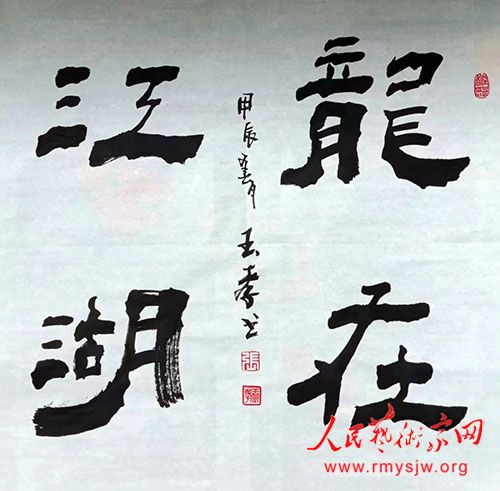 龍在
江湖
甲辰
月
玉
书
张
人民艺術家网
www.rmysjw.org